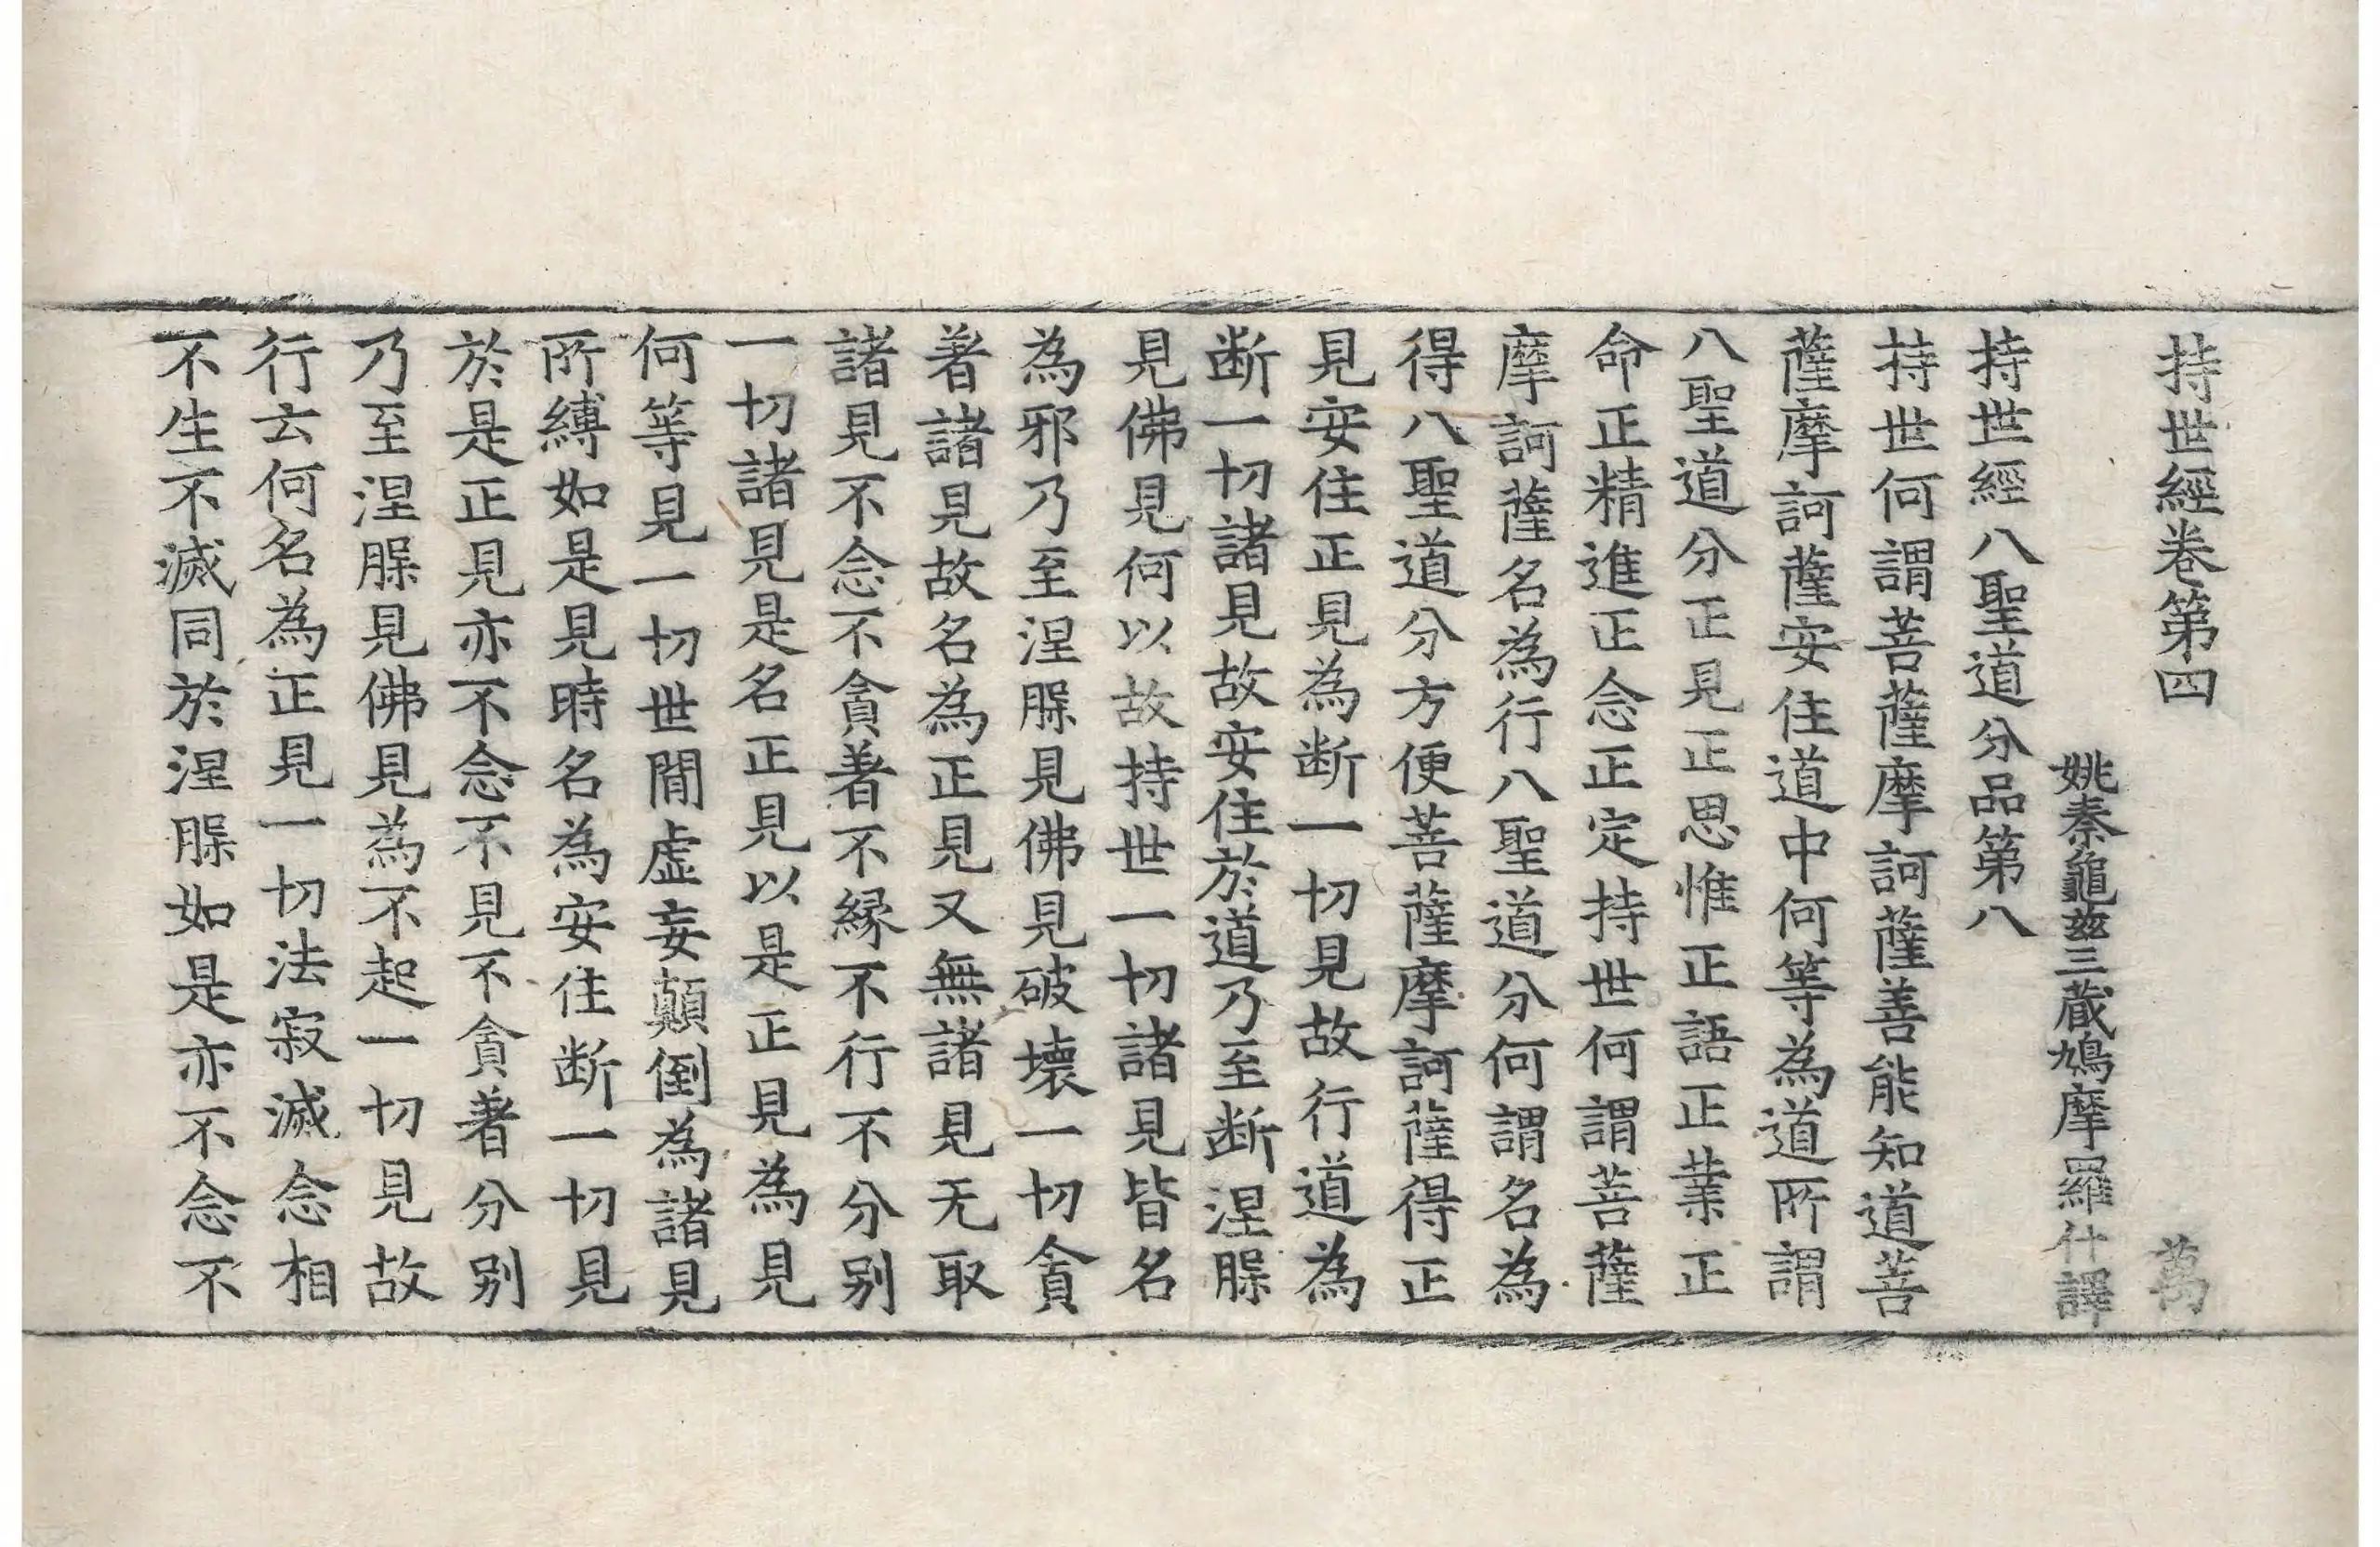 持世經卷第四 萬
姚秦龜茲三藏鳩摩羅什譯
持世經八聖道分品第八
持世何謂菩薩摩訶薩善能知道菩
薩摩訶薩安住道中何等為道所謂
八聖道分正見正思惟正語正業正
命正精進正念正定持世何謂菩薩
摩訶薩名為行八聖道分何謂名為
得八聖道分方便菩薩摩訶薩得正
見安住正見為断一切見故行道為
断一切諸見故安住於道乃至断涅槃
見佛見何以故持世一切諸見皆名
為邪乃至涅槃見佛見破壞一切貪
著諸見故名為正見又無諸見无取
諸見不念不貪著不緣不行不分别
一切諸見是名正見以是正見為見
何等見一切世閒虛妄顛倒為諸見
所縛如是見時名為安住断一切見
於是正見亦不念不見不貪著分别
乃至涅槃見佛見為不起一切見故
行云何名為正見一切法寂滅念相
不生不滅同於涅槃如是亦不念不